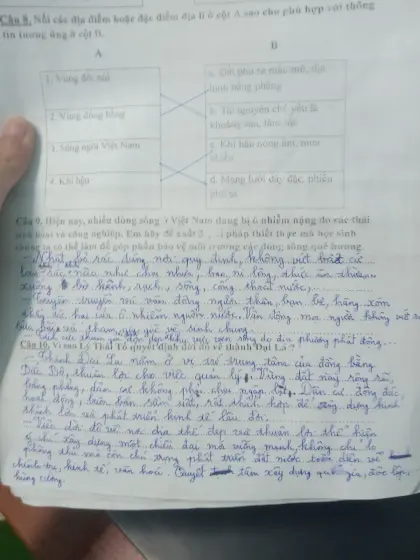 Câu 8. Nối các địa điểm hoặc đặc điểm địa lí ở cột A sao cho phù hợp với thông
tin tương ứng ở cột B.
A
B
1. Vùng đồi núi
a. Đất phù sa màu mỡ, địa
hình bằng phẳng
2. Vùng đồng bằng
b. Tài nguyên chủ yếu là
khoáng sản, lâm sản
3. Sông ngòi Việt Nam
c. Khí hậu nóng ẩm, mưa
nhiều
4. Khí hậu
d. Mạng lưới dày đặc, nhiều
phù sa
Câu 9. Hiện nay, nhiều dòng sông ở Việt Nam đang bị ô nhiễm nặng do rác thải
sinh hoạt và công nghiệp. Em hãy đề xuất 3 pháp thiết thực mà học sinh
chúng ta có thể làm để góp phần bảo vệ môi trường các dòng sông quê hương.
- Nhặt bỏ rác đúng nơi quy định, không vứt bất cứ
rác nào như chai nhựa, bao ni lông, thức ăn thừa
xuống bờ kênh, rạch, sông, cống thoát nước,
- Tuyên truyền và vận động người thân, bạn bè, hàng xóm
tác hại của ô nhiễm nguồn nước. Vận động mọi người không vứt
tham gia vệ sinh chung.
địa phương phát động...
Câu 10. Vì sao Lý Thái Tổ quyết định dời đô về thành Đại La ?
- Thành Đại La nằm ở vị trí trung tâm của đồng bằng
Bắc Bộ, thuận lợi cho việc quản lý. Vùng đất này rộng rãi,
bằng phẳng, dân cư không phải chịu ngập lụt. Dân cư đông đúc,
hoạt động buôn bán sầm uất, rất thích hợp để xây dựng kinh
thành lớn và phát triển kinh tế lâu đời.
- Việc dời đô về nơi địa thế đẹp và thuận lợi thể hiện
ý chí xây dựng một triều đại mà vững mạnh, không chỉ lo
phòng thủ mà còn chú trọng phát triển đất nước toàn diện về
chính trị, kinh tế, văn hoá. Quyết tâm xây dựng quốc gia, độc lập,
hùng cường.